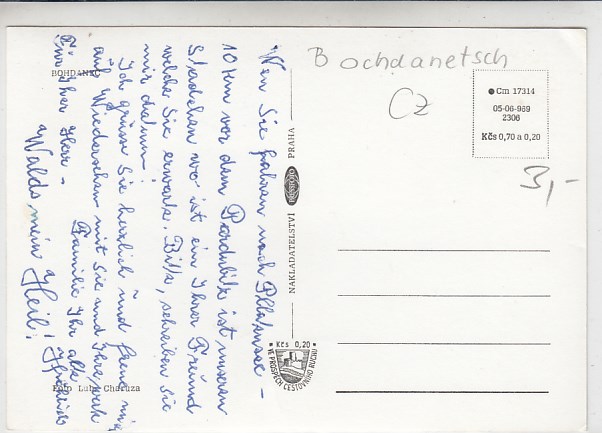 Bochdanetsch
CZ
BOHDANEČ
Cm 17314
05-06-969
2306
Kčs 0,70 a 0,20
3,-
NAKLADATELSTVÍ PRAHA
Kčs 0,20
VE PROSPĚCH CESTOVNÍHO RUCHU
Foto Luboš
Wen Sie fahren nach
10 Km vor dem Pardubitz ist unseren
Städchen wo ist ein Ihrer Freund
welche Sie erwarte. Bitte, schreiben Sie
mir
Ich grüsse Sie herzlich und freue mich
auf Wiedersehen mit Sie und Ihre
Familie Ihr alte
Ihr Herr -
Walds mein Heil!